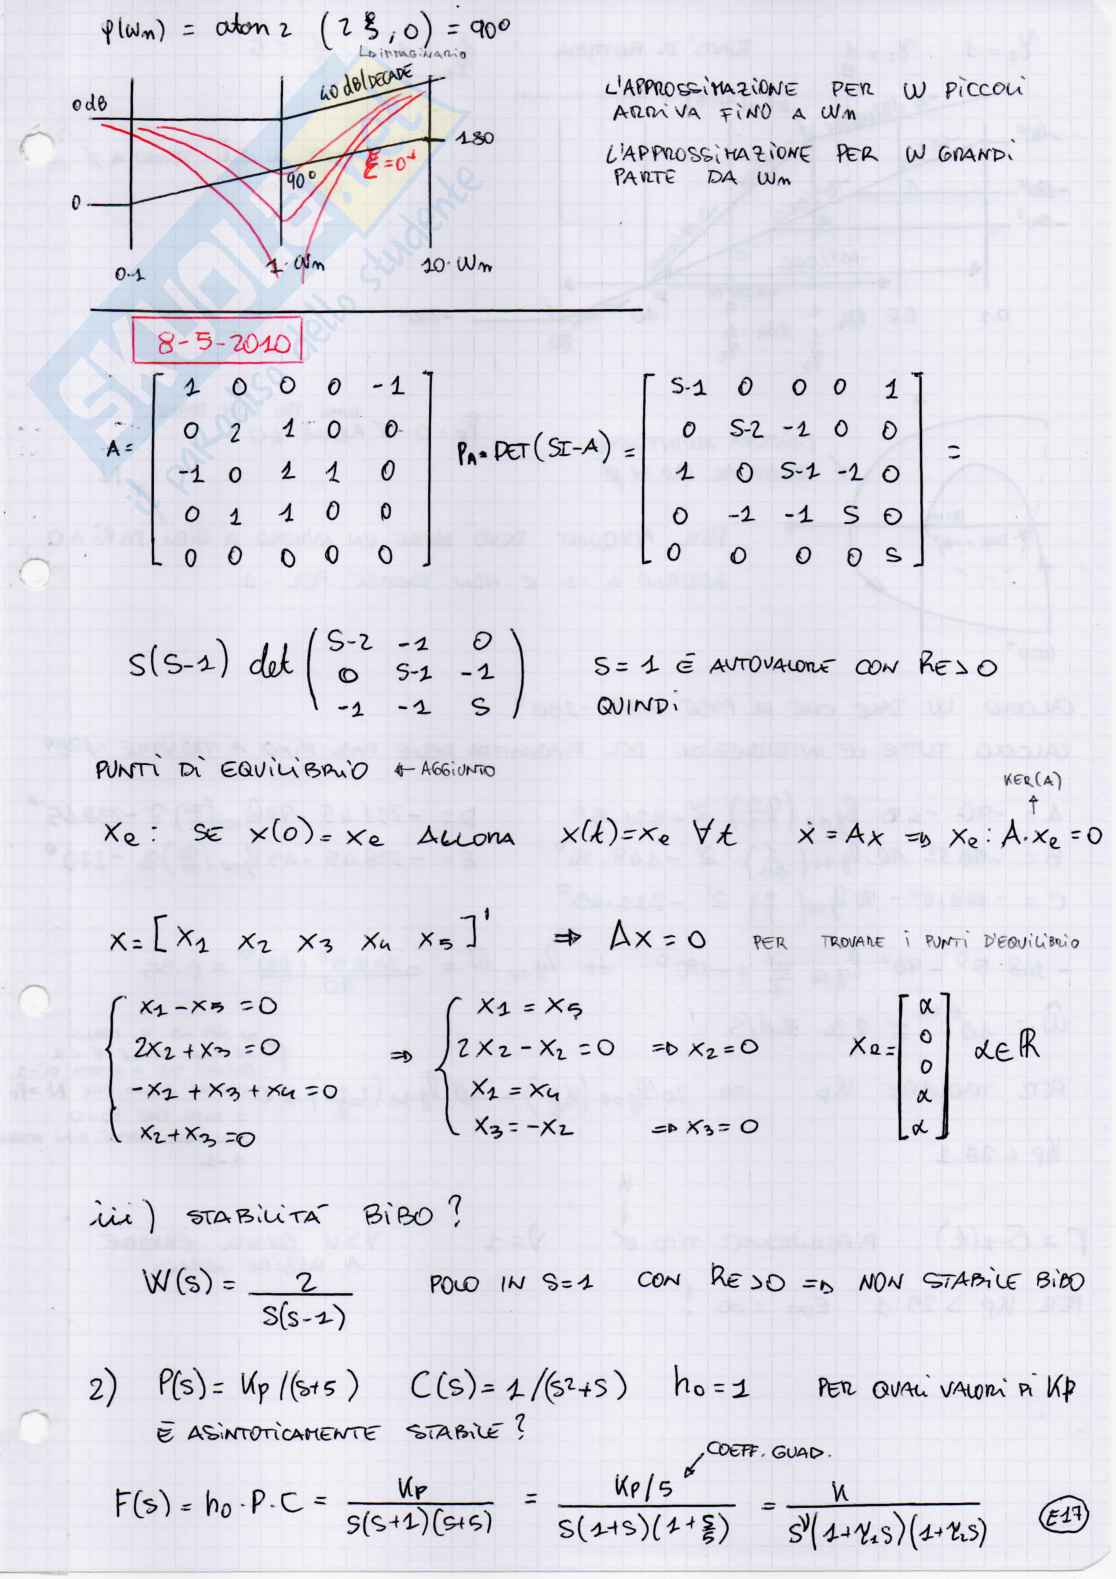 φ(ωn) = atan2 (2ξ, 0) = 90°
↳ immaginario
0 dB
40 dB/DECADE
180
90°
ξ=0+
0
0.1
1·ωn
10·ωn
L'APPROSSIMAZIONE PER ω PICCOLI
ARRIVA FINO A ωn
L'APPROSSIMAZIONE PER ω GRANDI
PARTE DA ωn
SKUOLA.net
il paradiso dello studente
8-5-2010
A = [ 1 0 0 0 -1
0 2 1 0 0
-1 0 1 1 0
0 1 1 0 0
0 0 0 0 0 ]
PA = DET(SI-A) = [ S-1 0 0 0 1
0 S-2 -1 0 0
1 0 S-1 -1 0
0 -1 -1 S 0
0 0 0 0 S ] =
S(S-1) det ( S-2 -1 0
0 S-1 -1
-1 -1 S )
S=1 È AUTOVALORE CON Re>0
QUINDI
PUNTI DI EQUILIBRIO ← AGGIUNTO
KER(A)
↑
Xe : SE X(0) = Xe ALLORA X(t) = Xe ∀t Ẋ = AX ⇒ Xe : A·Xe = 0
X = [X1 X2 X3 X4 X5]' ⇒ AX = 0 PER TROVARE I PUNTI D'EQUILIBRIO
{ X1 - X5 = 0
2X2 + X3 = 0
-X2 + X3 + X4 = 0
X2 + X3 = 0
⇒ { X1 = X5
2X2 - X2 = 0 ⇒ X2 = 0
X1 = X4
X3 = -X2 ⇒ X3 = 0
Xe = [ α
0
0
α
α ] α∈ℝ
iii) STABILITÀ BIBO?
W(S) = 2 / S(S-1) POLO IN S=1 CON Re>0 ⇒ NON STABILE BIBO
2) P(S) = Kp/(S+5) C(S) = 1/(S²+S) h0 = 1 PER QUALI VALORI DI Kp
È ASINTOTICAMENTE STABILE?
COEFF. GUAD.
F(S) = h0·P·C = Kp / S(S+1)(S+5) = Kp/5 / S(1+S)(1+S/5) = K / S^ν(1+τ1S)(1+τ2S)
E17